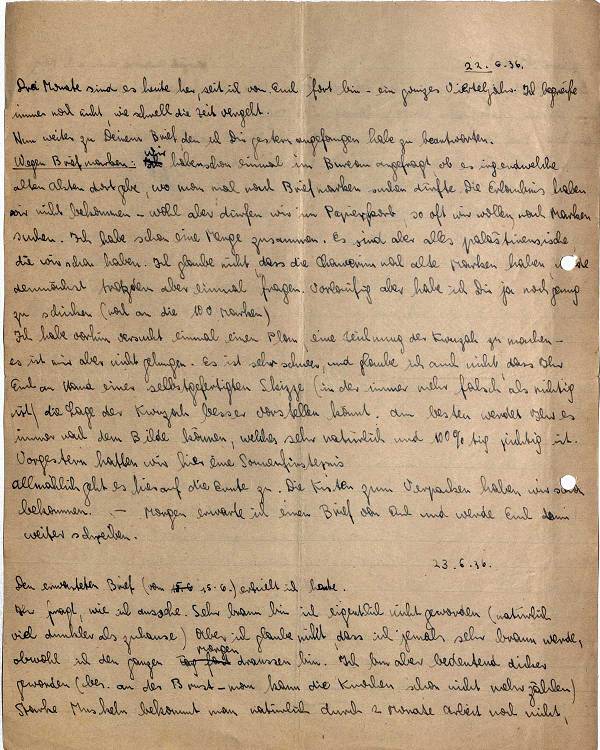 22.6.36.
Drei Monate sind es heute her, seit ich von Euch fort bin - ein ganzes Vierteljahr. Ich begreife
immer noch nicht, wie schnell die Zeit vergeht.
Nun weiter zu Deinem Brief den ich Dir gestern angefangen habe zu beantworten.
Wegen Briefmarken: wir haben schon einmal im Bureau angefragt ob es irgendwelche
alten Akten dort gebe, wo man mal nach Briefmarken suchen dürfte. Die Erlaubnis haben
wir nicht bekommen - wohl aber dürfen wir im Papierkorb so oft wir wollen nach Marken
suchen. Ich habe schon eine Menge zusammen. Es sind aber alles palästinensische,
die wir schon haben. Ich glaube nicht dass die Chawerim mal alte Marken haben werde
demnächst trotzdem aber einmal fragen. Vorläufig aber habe ich Dir ja noch genug
zu schicken (noch an die 100 Marken)
Ich habe vorhin versucht einmal einen Plan eine Zeichnung der Kwuzah zu machen -
es ist mir aber nicht gelungen. Es ist sehr schwer, und glaube ich auch nicht dass Ihr
Euch an Hand einer selbstgefertigten Skizze (in der immer mehr falsch als richtig
ist) die Lage der Kwuzah besser vorstellen könnt. Am besten werdet Ihr es
immer nach dem Bilde können, welches sehr natürlich und 100%tig richtig ist.
Vorgestern hatten wir hier eine Sonnenfinsternis
allmählich geht es hier auf die Ernte zu. Die Kisten zum Verpacken haben wir schon
bekommen. - Morgen erwarte ich einen Brief von Euch und werde Euch dann
weiter schreiben.
23.6.36.
Den erwarteten Brief (vom 15.6.) erhielt ich heute.
Ihr fragt, wie ich aussehe. Sehr braun bin ich eigentlich nicht geworden (natürlich
viel dunkler als zuhause) Aber ich glaube nicht, dass ich jemals sehr braun werde,
obwohl ich den ganzen morgen draussen bin. Ich bin aber bedeutend dicker
geworden (bes. an der Brust - man kann die Knochen schon nicht mehr zählen)
starke Muskeln bekommt man natürlich durch 2 Monate Arbeit noch nicht,